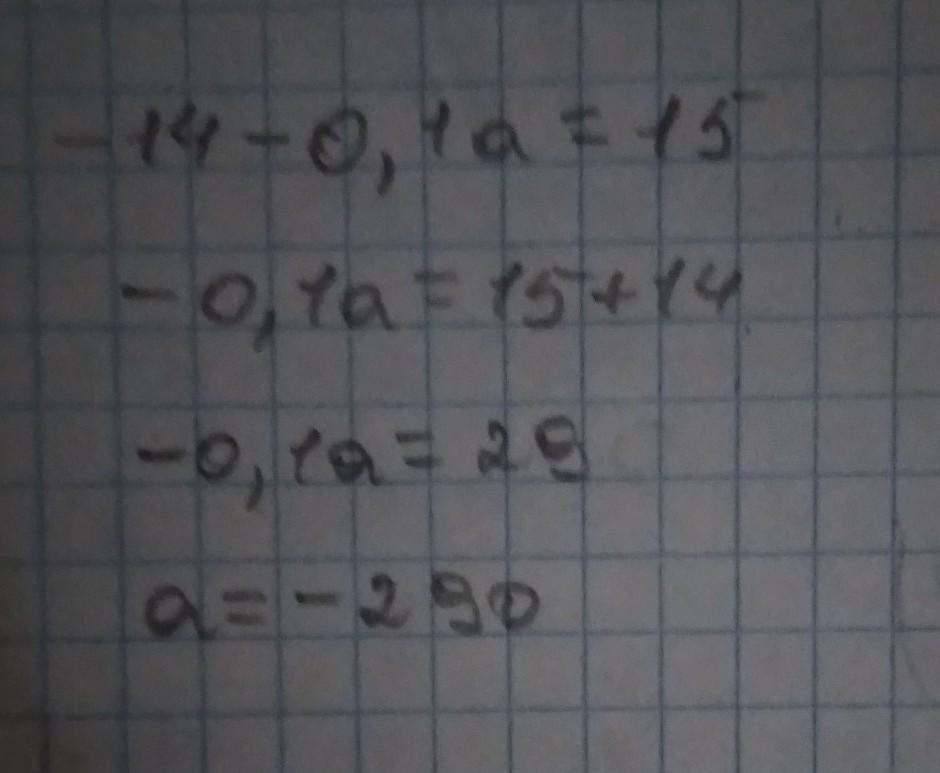 -14-0,1a=15
-0,1a=15+14
-0,1a=29
a=-290